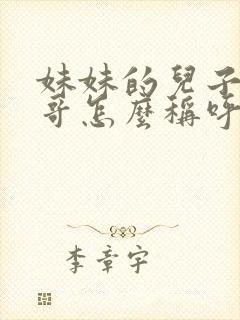 妹妹的兒子
哥怎麼稱呼
李章宇